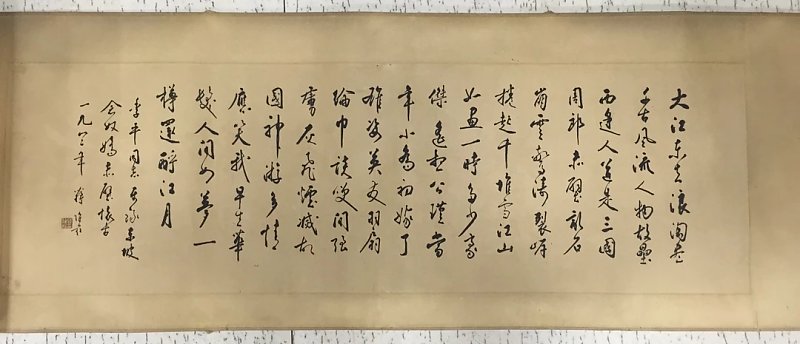 大江东去浪淘尽
千古风流人物故垒
西边人道是三国
周郎赤壁乱石
崩云惊涛裂岸
捲起千堆雪江山
如画一时多少豪
傑遥想公瑾当
年小乔初嫁了
雄姿英发羽扇
纶巾谈笑间强
虏灰飞烟灭故
国神游多情
应笑我早生华
发人间如梦一
樽还酹江月
李平同志 东坡
念奴娇赤壁怀古
一九八三年